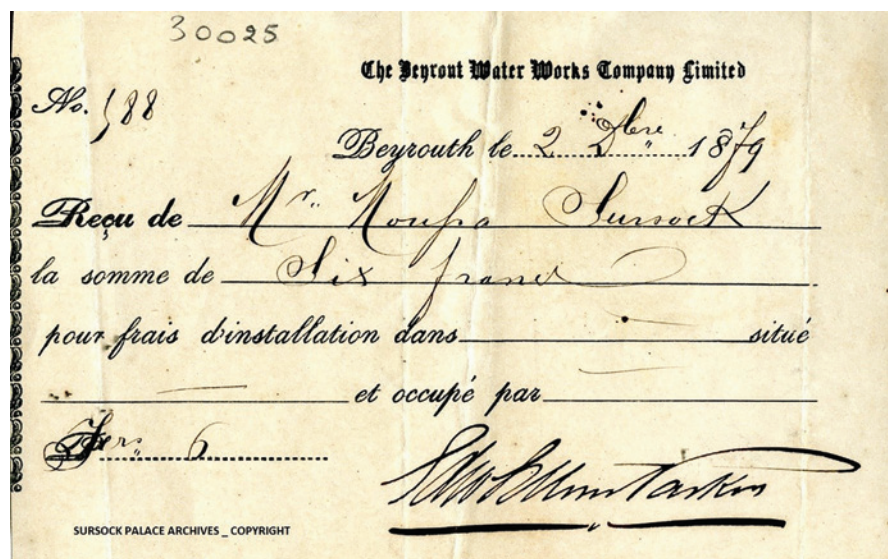 30025
The Beyrout Water Works Company Limited
No. 588
Beyrouth le 2 Dbre 1879
Reçu de Mr. Moussa Sursock
la somme de Six francs
pour frais d'installation dans situé
et occupé par
Frs. 6
SURSOCK PALACE ARCHIVES _ COPYRIGHT